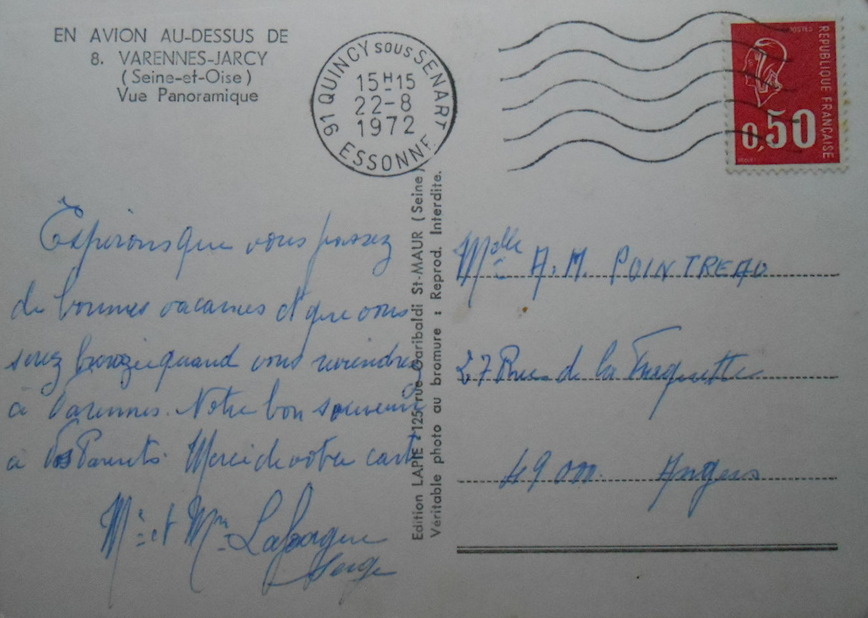 EN AVION AU-DESSUS DE
8. VARENNES-JARCY
(Seine-et-Oise)
Vue Panoramique
91 QUINCY SOUS SENART
15H15
22-8
1972
ESSONNE
REPUBLIQUE FRANÇAISE
POSTES
0,50
Espérons que vous passez
de bonnes vacances et que vous
serez bronzée quand vous reviendrez
à Varennes. Notre bon souvenir
à Vos Parents. Merci de votre carte
Mr et Mme
Serge
Edition LAPIE 125, rue Garibaldi St-MAUR (Seine)
Véritable photo au bromure : Reprod. Interdite.
Melle A.M. POINTREAU
27 Rue de la
49000 Angers